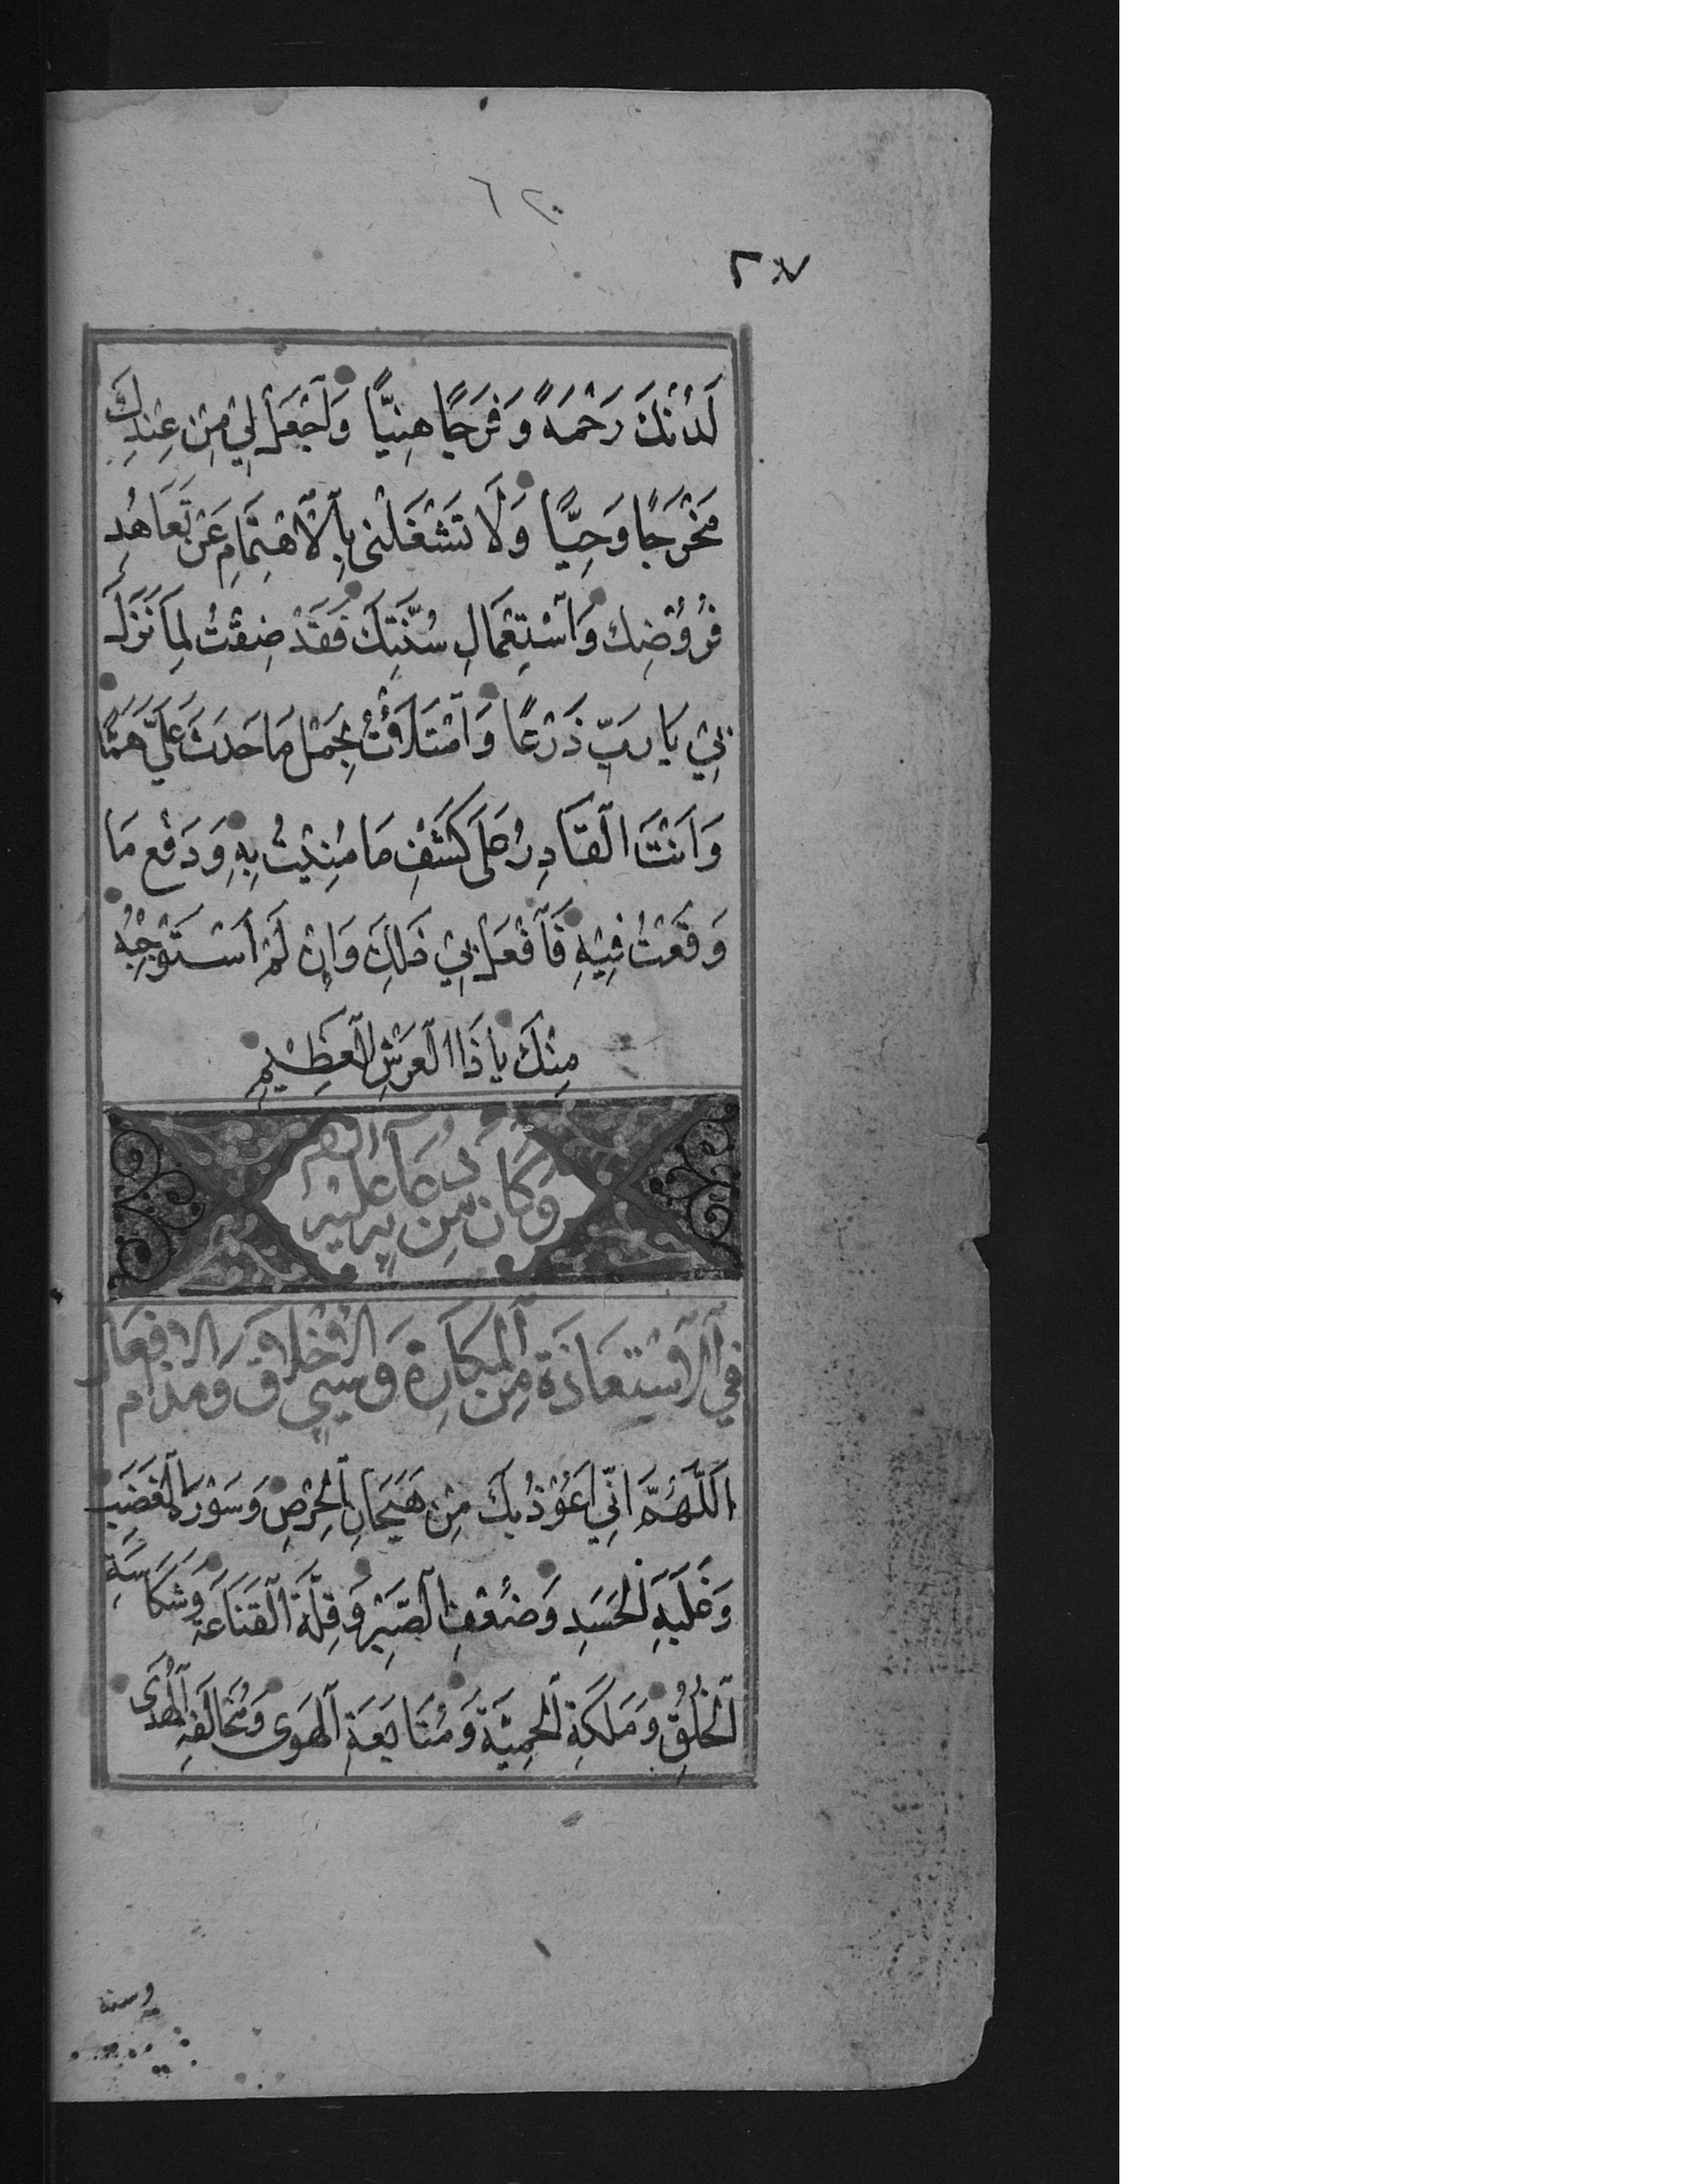 ٢٧
لَدُنْكَ رَحْمَةً وَفَرَجًا هَنِيًّا وَٱجْعَلْ لِي مِنْ عِنْدِكَ
مَخْرَجًا وَحِيًّا وَلَا تَشْغَلْنِي بِٱلْاهْتِمَامِ عَنْ تَعَاهُدِ
فُرُوضِكَ وَٱسْتِعْمَالِ سُنَّتِكَ فَقَدْ ضِقْتُ لِمَا نَزَلَ
بِي يَا رَبِّ ذَرْعًا وَٱمْتَلَأْتُ بِحَمْلِ مَا حَدَثَ عَلَيَّ هَمًّا
وَاَنْتَ الْقَادِرُ عَلَى كَشْفِ مَا مُنِيْتُ بِهِ وَدَفْعِ مَا
وَقَعْتُ فِيْهِ فَٱفْعَلْ بِي ذَلِكَ وَاِنْ لَمْ اَسْتَوْجِبْهُ
مِنْكَ يَا ذَا الْعَرْشِ الْعَظِيْمِ
وَكَانَ مِنْ دُعَائِهِ عَلَيْهِ
فِي ٱلْاِسْتِعَاذَةِ مِنَ ٱلْمَكَارِهِ وَسَيِّئِ الْاَخْلَاقِ وَمَذَامِّ الْاَفْعَالِ
اَللّٰهُمَّ اِنِّي اَعُوْذُ بِكَ مِنْ هَيَجَانِ ٱلْحِرْصِ وَسَوْرَةِ ٱلْغَضَبِ
وَغَلَبَةِ ٱلْحَسَدِ وَضَعْفِ ٱلصَّبْرِ وَقِلَّةِ ٱلْقَنَاعَةِ وَشَكَاسَةِ
ٱلْخُلُقِ وَمَلَكَةِ ٱلْحَمِيَّةِ وَمُتَابَعَةِ ٱلْهَوَى وَمُخَالَفَةِ ٱلْهُدَى
وسنة